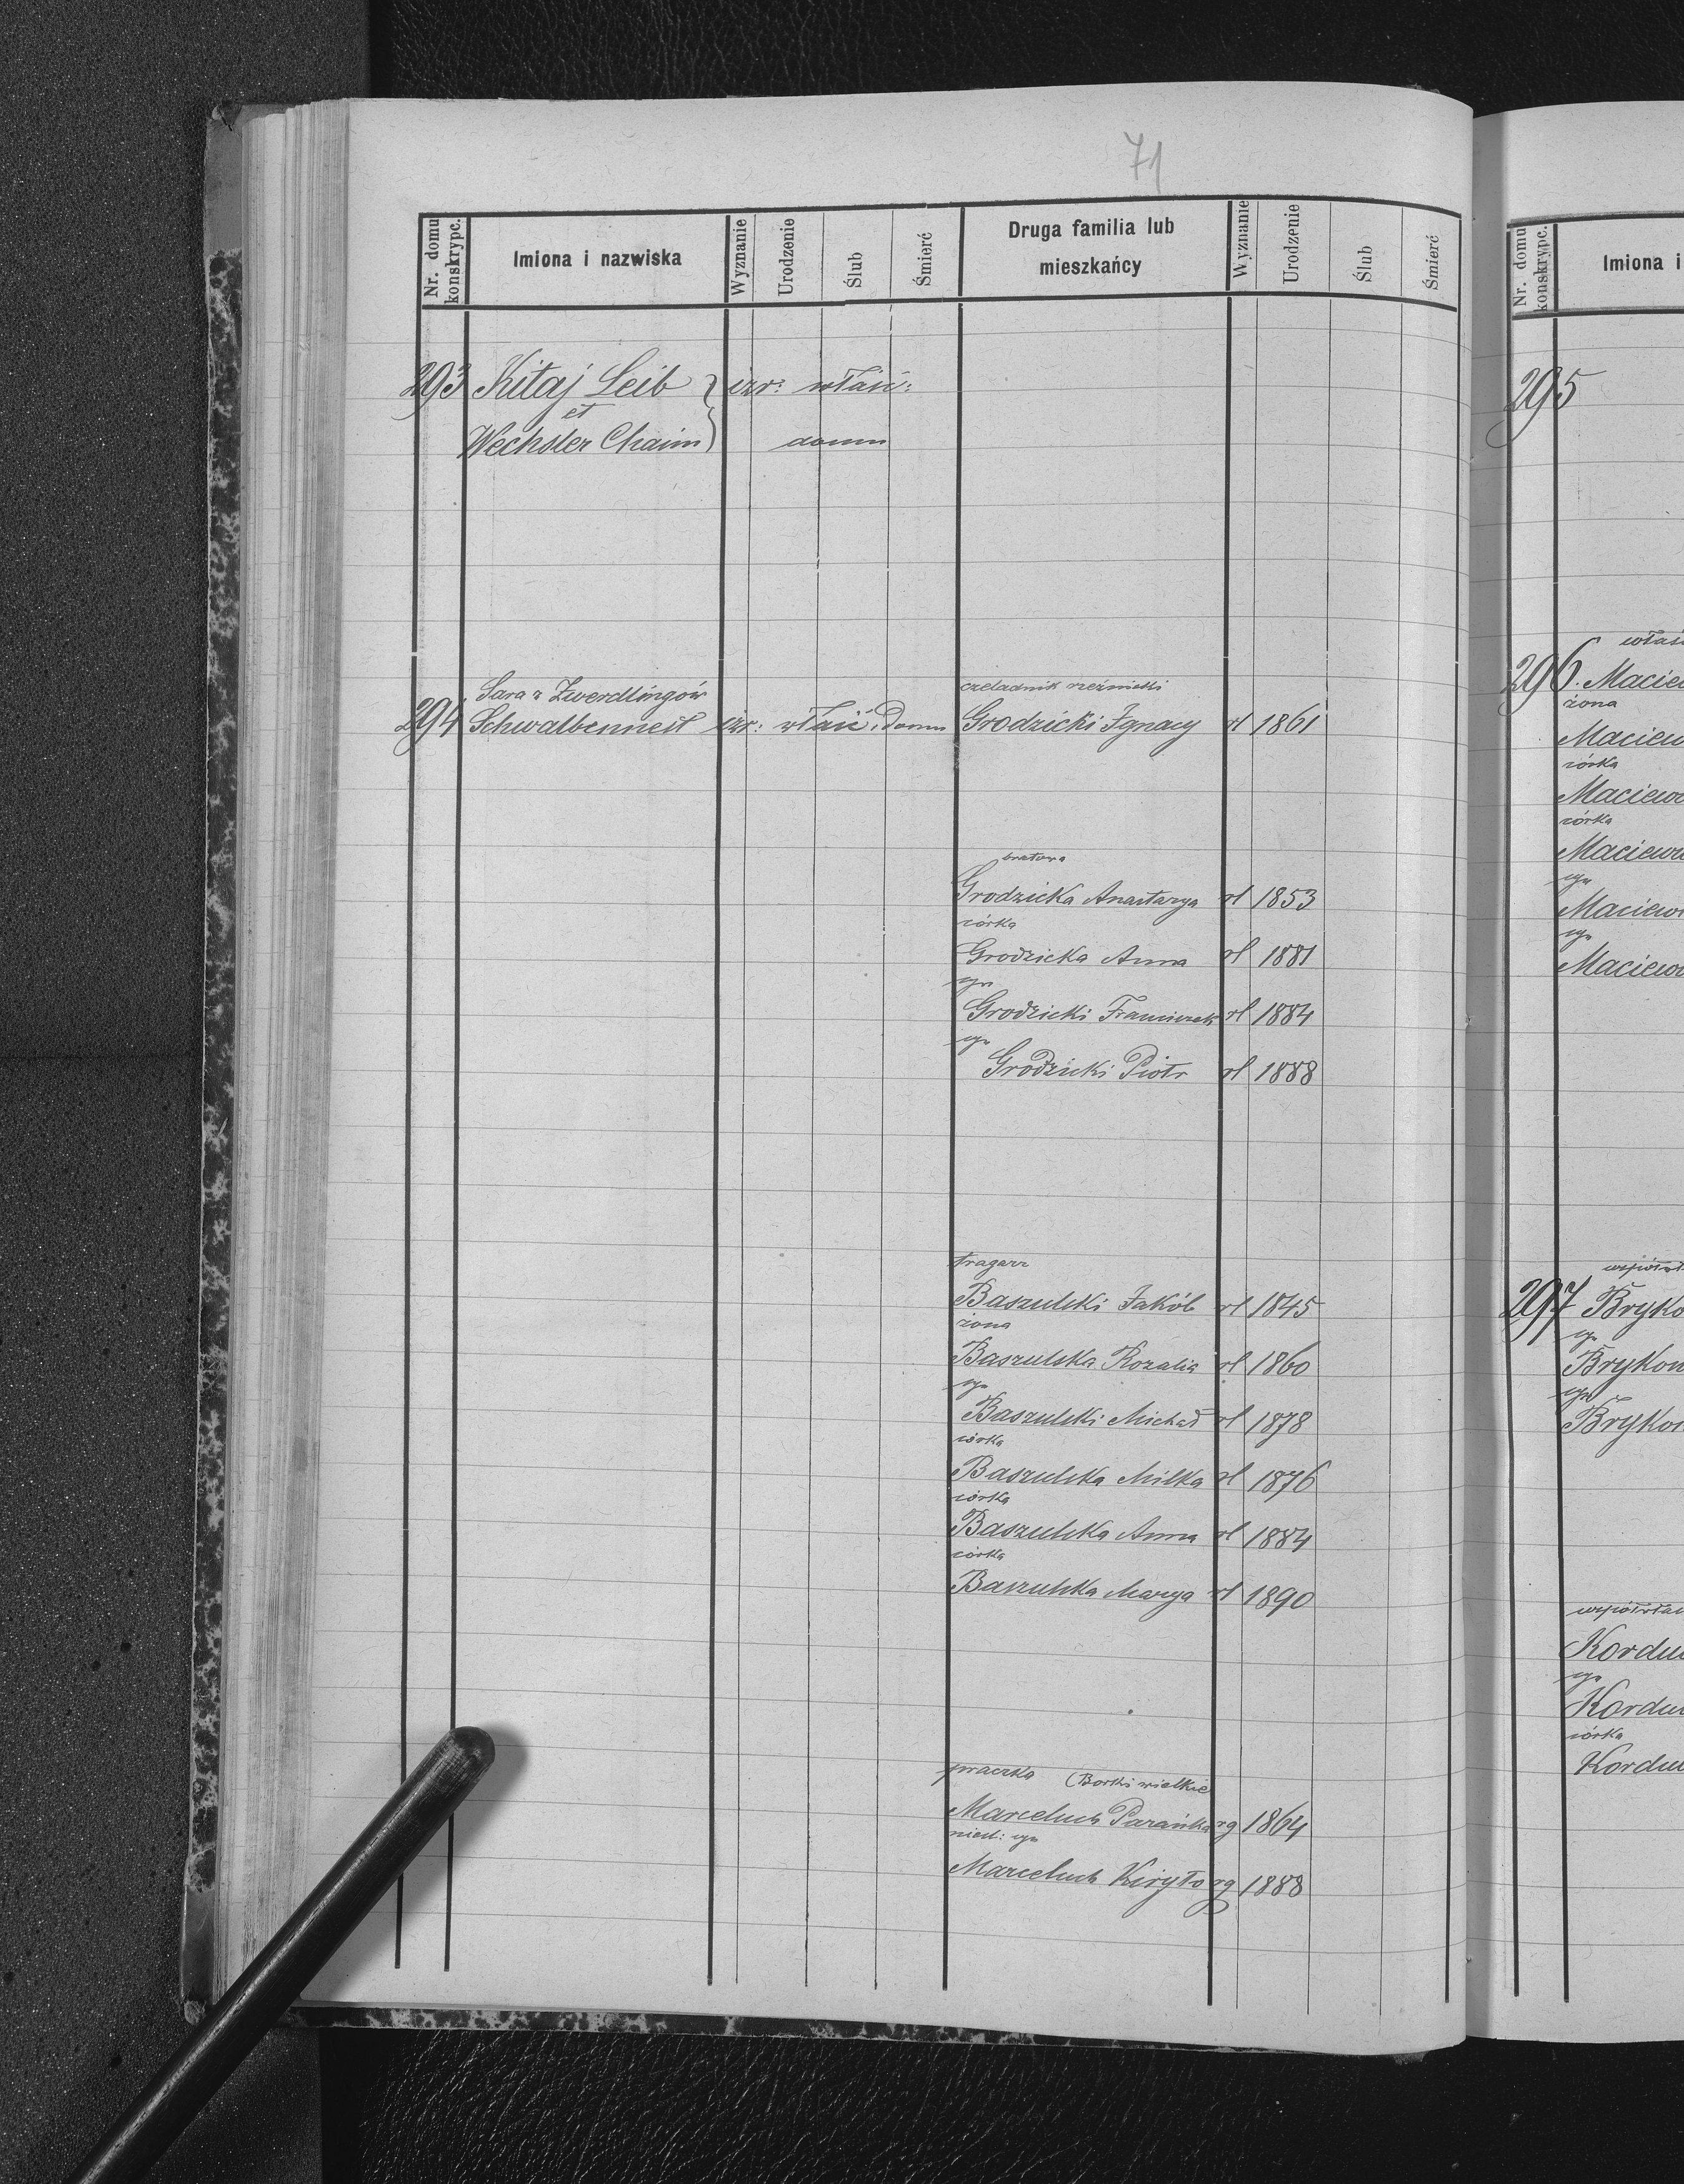 71
Nr. domu konskrypc.
Imiona i nazwiska
Wyznanie
Urodzenie
Ślub
Śmierć
Druga familia lub mieszkańcy
Wyznanie
Urodzenie
Ślub
Śmierć
293 Kitaj Leib izr: właść:
et
Wechsler Chaim domu
Sara z Zwerdlingów
294 Schwalbennest izr: właść: Domu
czeladnik rzeźnicki
Grodzicki Ignacy rł 1861
bratowa
Grodzicka Anastazya rł 1853
córka
Grodzicka Anna rł 1881
syn
Grodzicki Franciszek rł 1884
syn
Grodzicki Piotr rł 1888
tragarz
Baszulski Jakób rł 1845
żona
Baszulska Rozalia rł 1860
syn
Baszulski Michał rł 1878
córka
Baszulska Milka rł 1876
córka
Baszulska Anna rł 1884
córka
Baszulska Marya rł 1890
praczka (Borki wielkie
Marceluch Parańka rg 1864
nieśl: syn
Marceluch Kiryło rg 1888
Nr. domu konskrypc.
Imiona i
295
właśc
296. Maciew
żona
Maciew
córka
Maciew
córka
Maciew
syn
Maciew
syn
Maciew
współwł
297 Bryko
syn
Brykon
syn
Brykon
współwłaś
Kordu
syn
Kordu
córka
Kordu